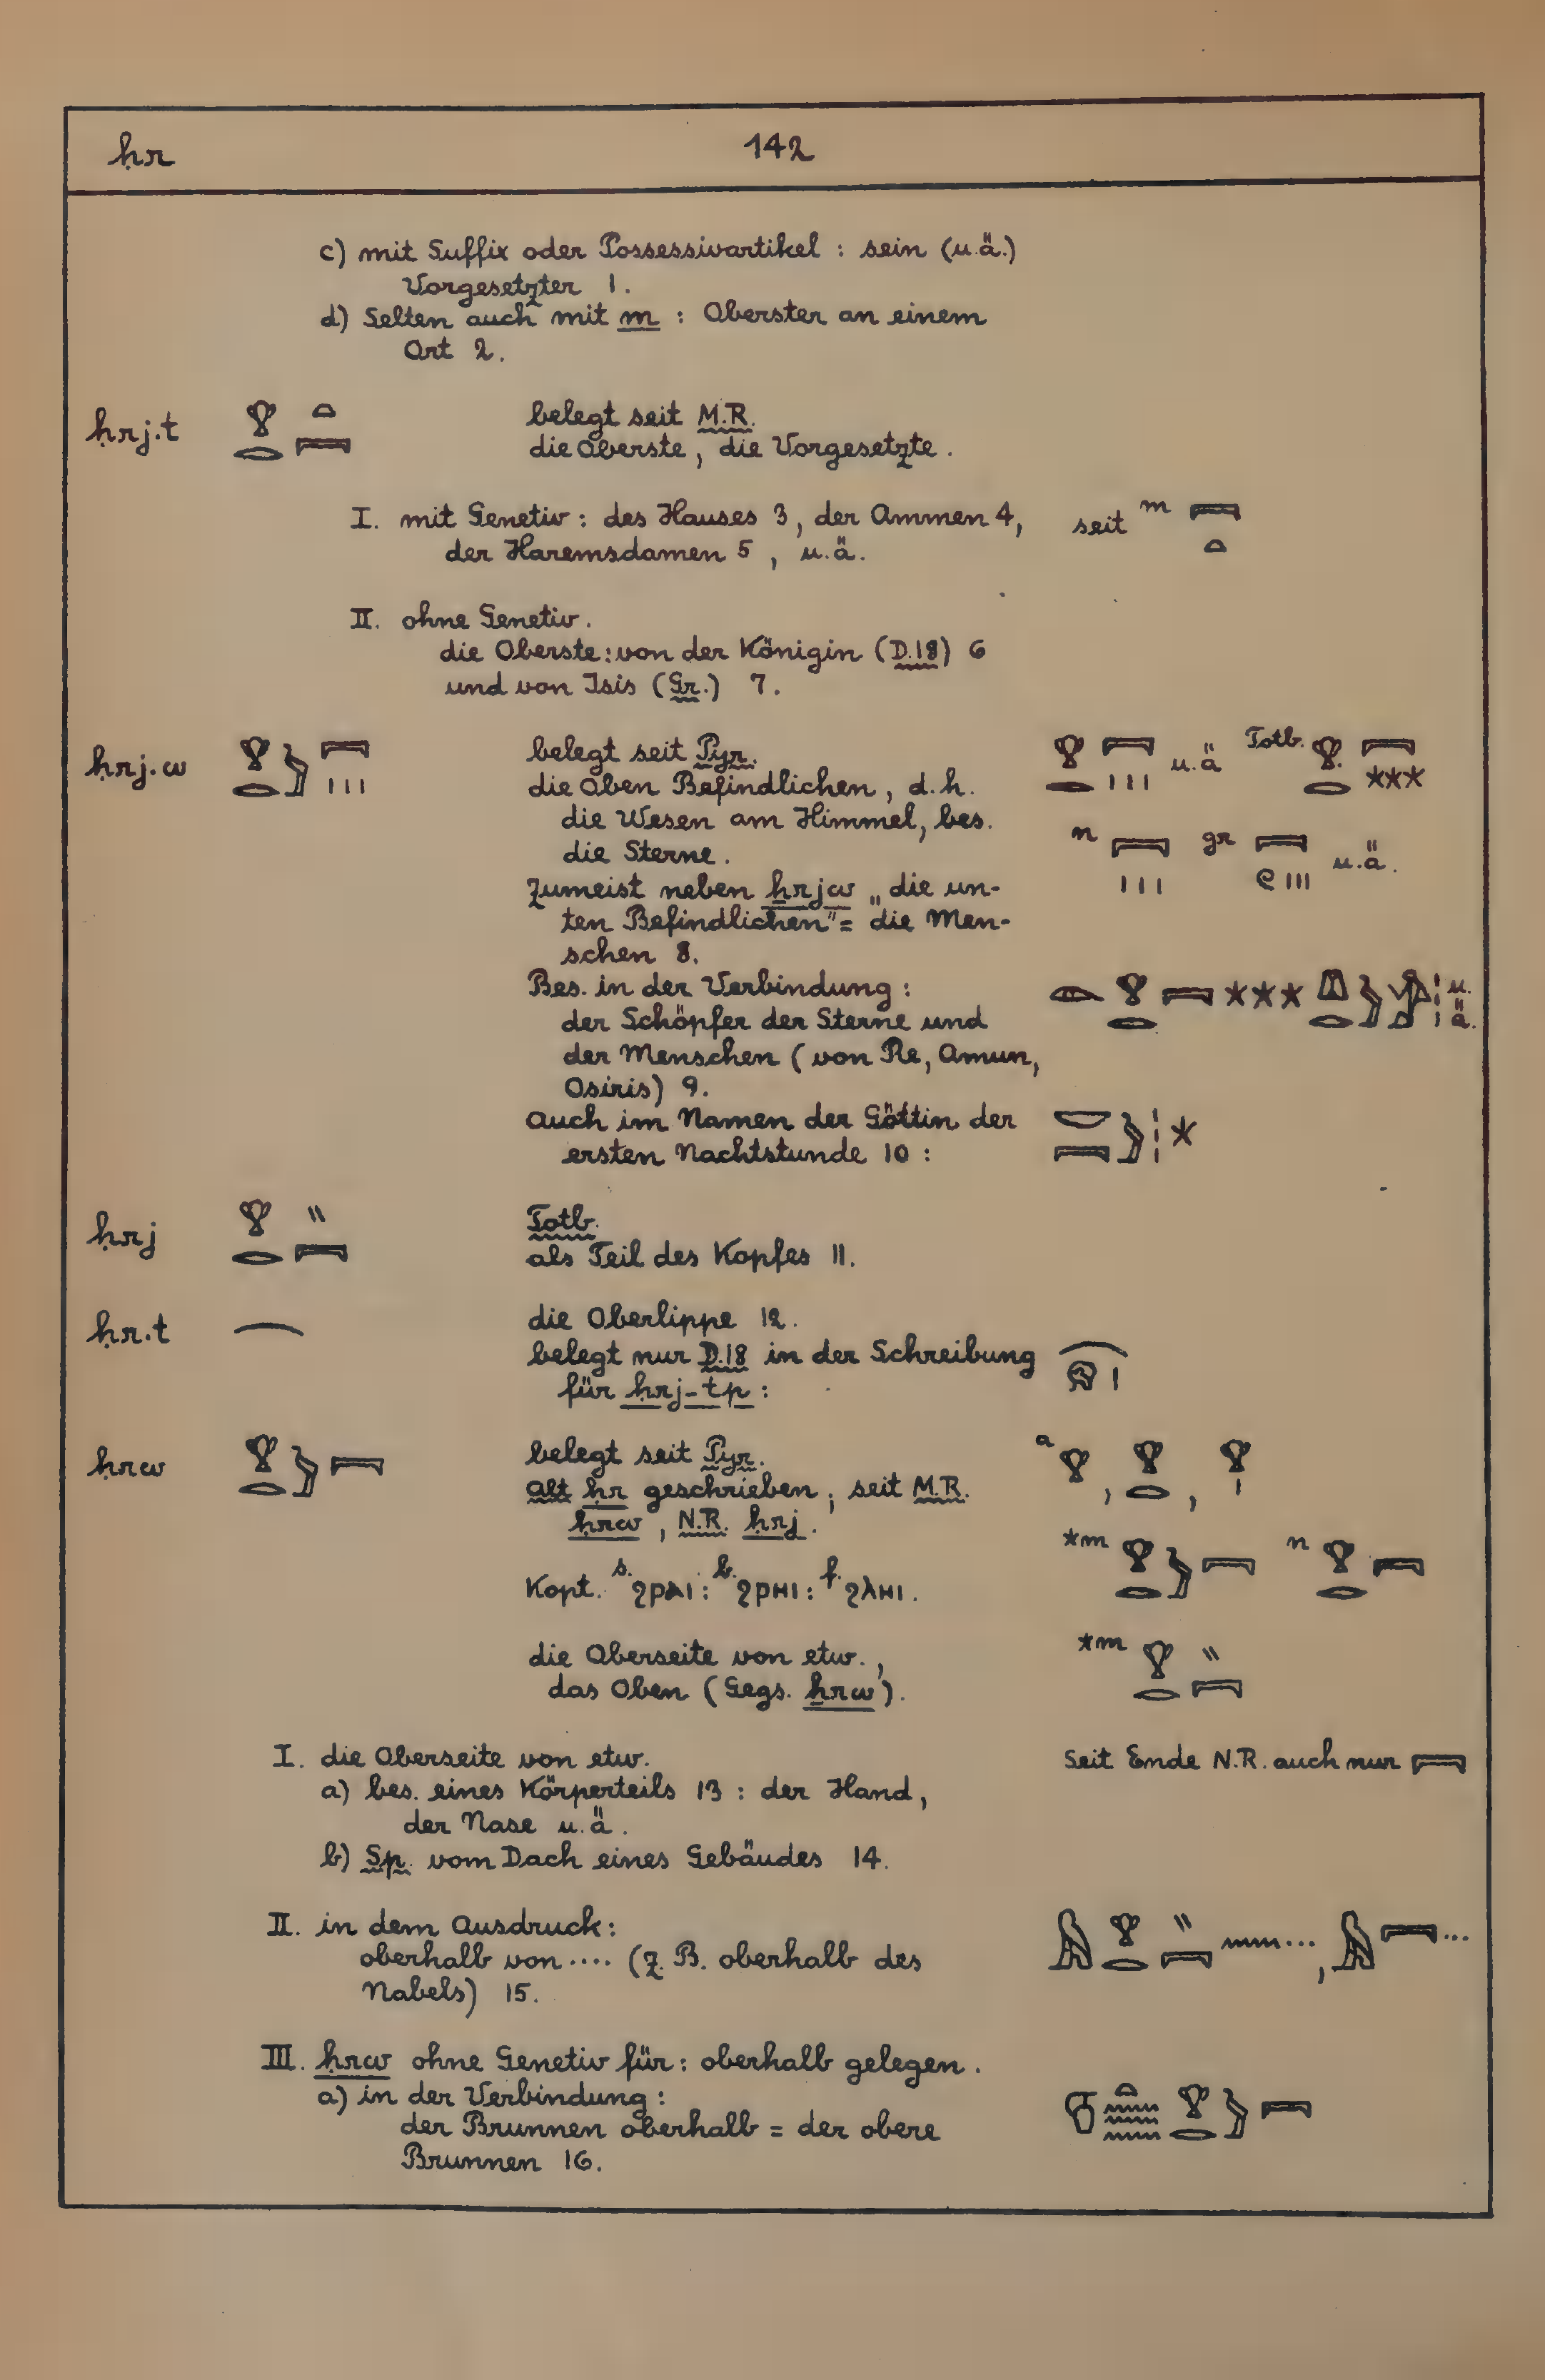 ḥr 142
c) mit Suffix oder Possessivartikel : sein (u.ä.)
Vorgesetzter 1.
d) Selten auch mit m : Oberster an einem
Ort 2.
ḥrj.t belegt seit M.R.
die Oberste, die Vorgesetzte.
I. mit Genetiv : des Hauses 3, der Ammen 4, seit m
der Haremsdamen 5, u.ä.
II. ohne Genetiv.
die Oberste : von der Königin (D.18) 6
und von Isis (Gr.) 7.
ḥrj.w belegt seit Pyr. u.ä Totb.
die Oben Befindlichen, d.h.
die Wesen am Himmel, bes.
die Sterne. n gr u.ä.
Zumeist neben ẖrjw „die un-
ten Befindlichen" = die Men-
schen 8.
Bes. in der Verbindung : u.ä.
der Schöpfer der Sterne und
der Menschen (von Re, Amun,
Osiris) 9.
Auch im Namen der Göttin der
ersten Nachtstunde 10 :
ḥrj Totb.
als Teil des Kopfes 11.
ḥr.t die Oberlippe 12.
belegt nur D.18 in der Schreibung
für ḥrj-tp :
ḥrw belegt seit Pyr. a , ,
alt ḥr geschrieben, seit M.R.
ḥrw, N.R. ḥrj. *m n
Kopt. s. ϩⲣⲁⲓ : b. ϩⲣⲏⲓ : f. ϩⲗⲏⲓ.
die Oberseite von etw., *m
das Oben (Gegs. ẖrw).
I. die Oberseite von etw. Seit Ende N.R. auch nur
a) bes. eines Körperteils 13 : der Hand,
der Nase u.ä.
b) Sp. vom Dach eines Gebäudes 14.
II. in dem Ausdruck : ... , ...
oberhalb von .... (z.B. oberhalb des
Nabels) 15.
III. ḥrw ohne Genetiv für : oberhalb gelegen.
a) in der Verbindung :
der Brunnen oberhalb = der obere
Brunnen 16.